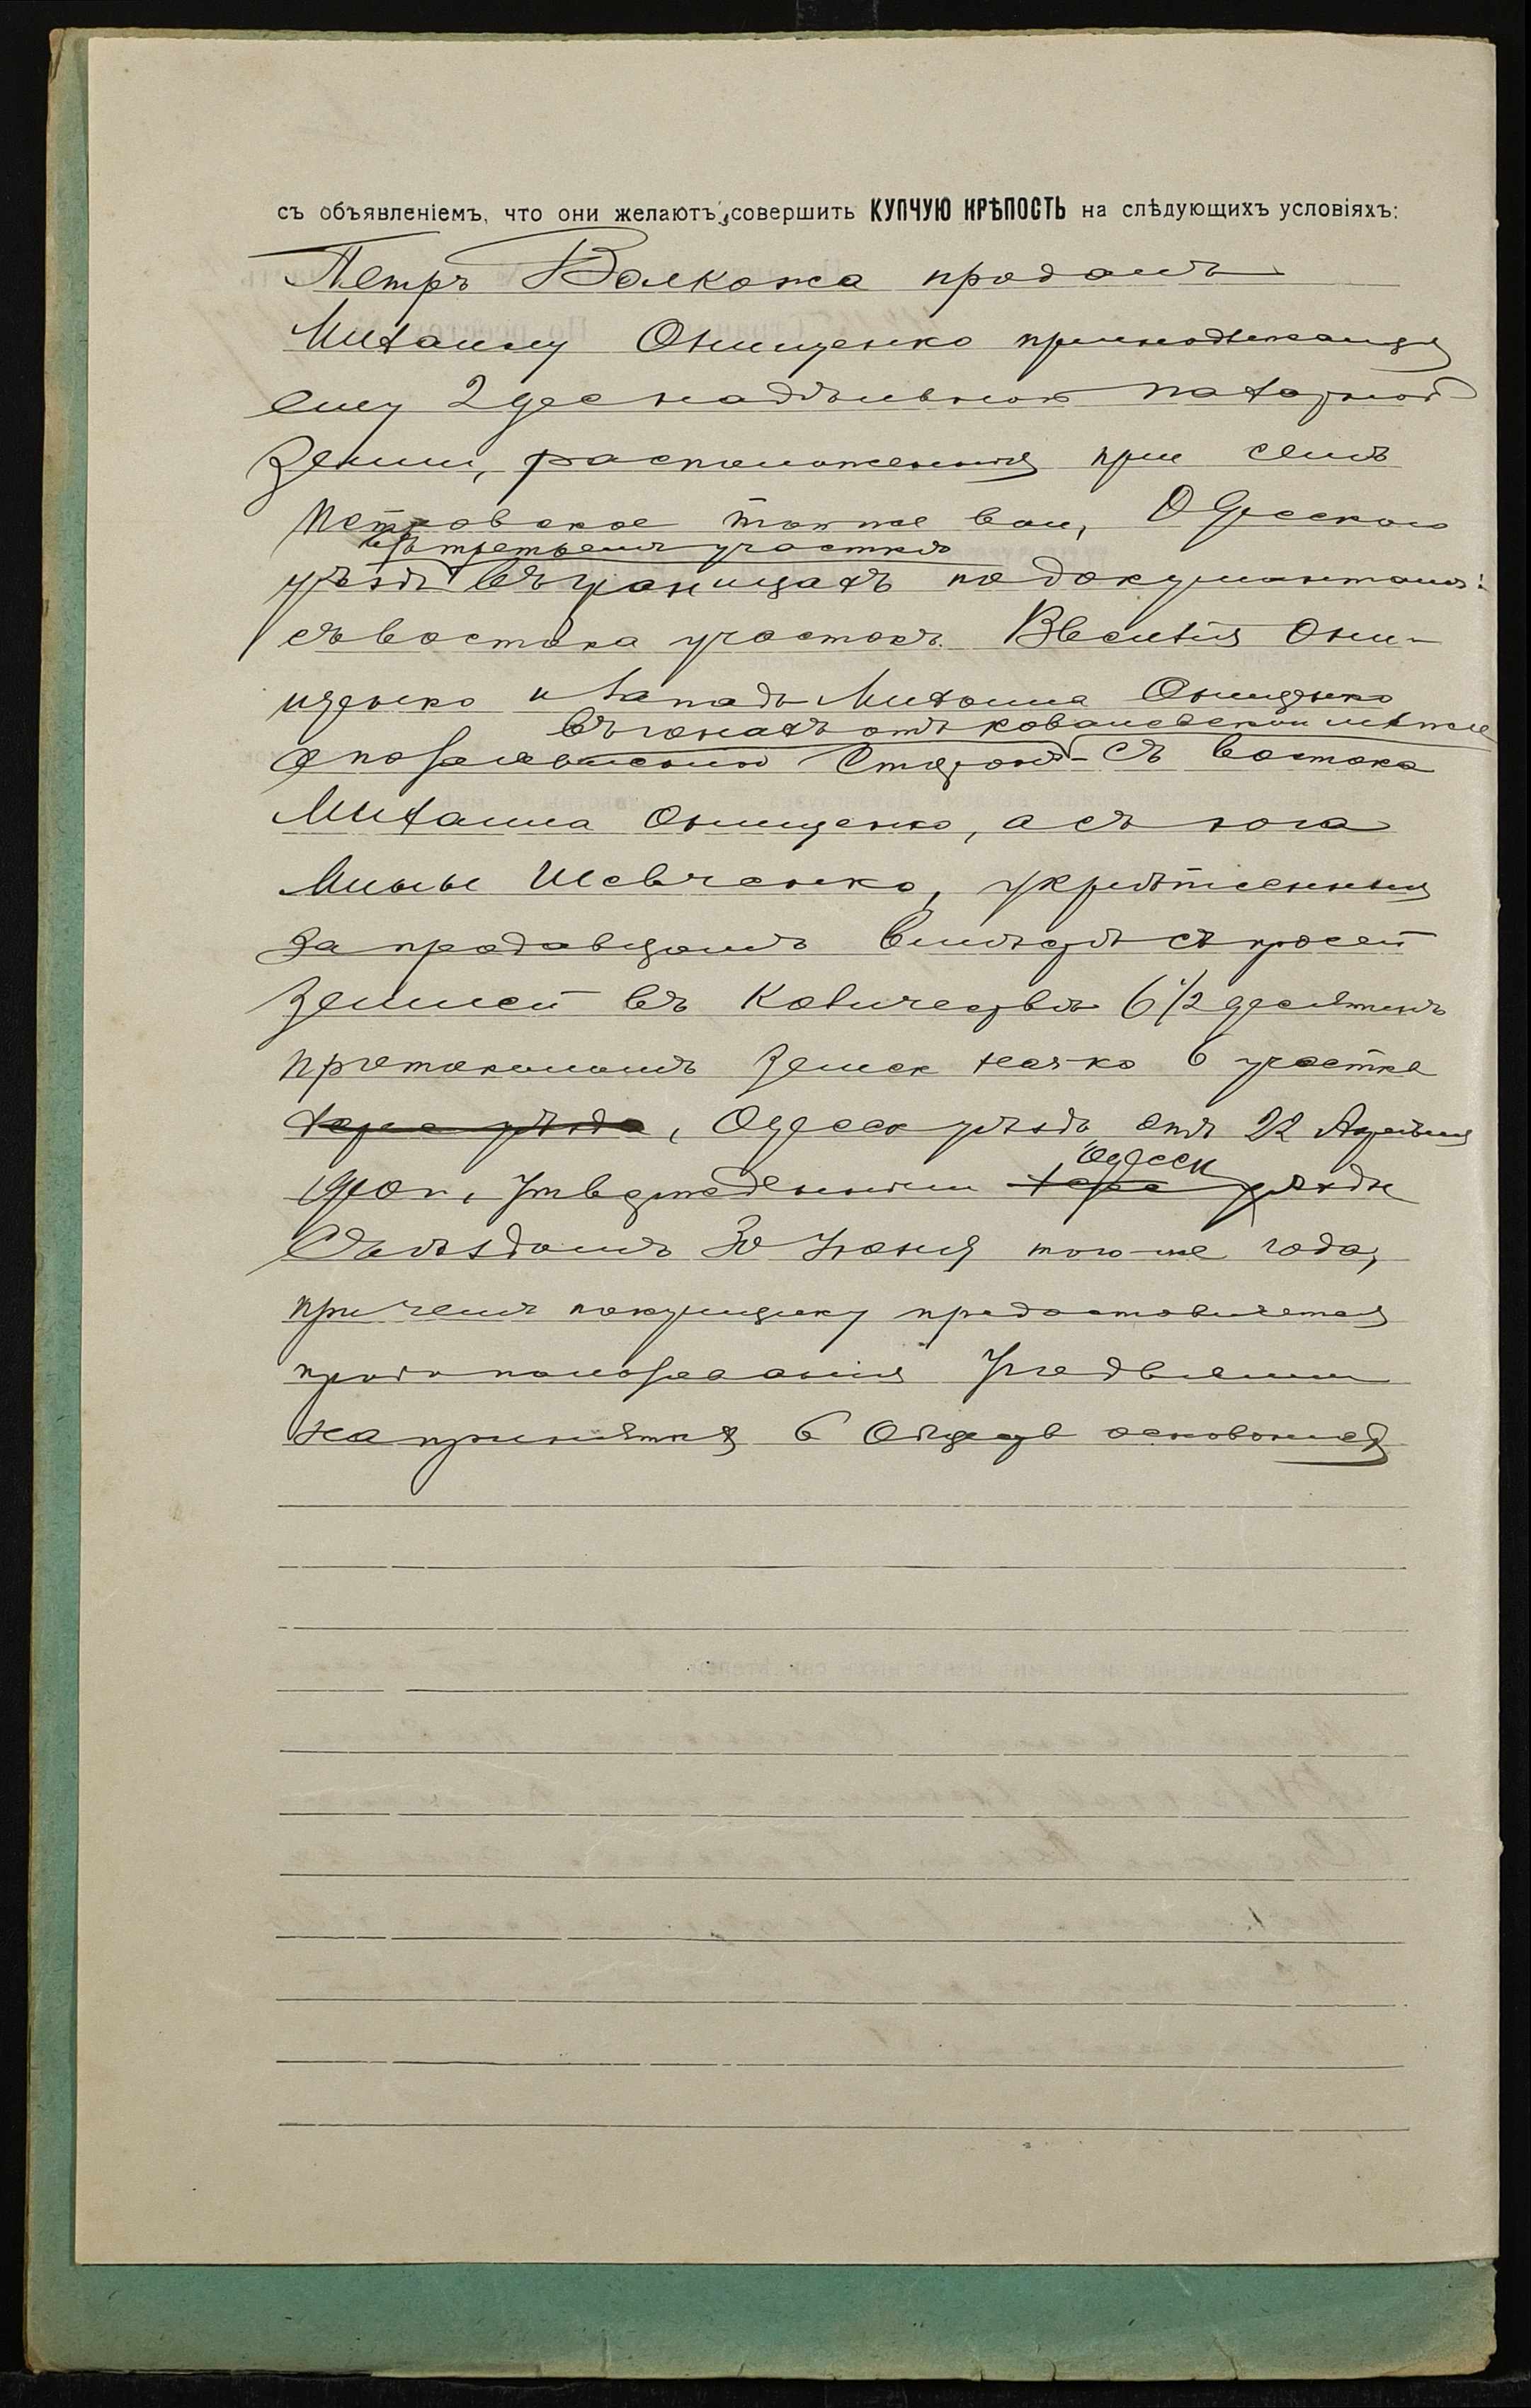 съ объявленіемъ, что они желаютъ, совершить КУПЧУЮ КРѢПОСТЬ на слѣдующихъ условіяхъ:
Петръ продалъ
Михаилу Онищенко принадлежащія
ему 2 дес надѣльной пахатной
земли, расположенныя при селѣ
Петровское тоже вол, Одесскаго
въ третьемъ участкѣ
уѣзда въ границахъ по документамъ:
съ востока участокъ Онищенко
и запада Михаила Онищенко
въ отъ ковалевской межи
а по съ востока
Михаила Онищенко, а съ юга
Шевченко, укрѣпленныя
за продавцомъ вмѣстѣ съ
землей въ количествѣ 6 1/2 десятинъ
протоколомъ Земск нач-ка 6 участка
, Одесск уѣзда отъ 22 Апрѣля
утвержденнымъ Одесск уѣздн
Съѣздомъ 30 Іюня того-же года,
при чемъ покупщику предоставляется
право пользованія
на принятыхъ в Обществ основаніяхъ